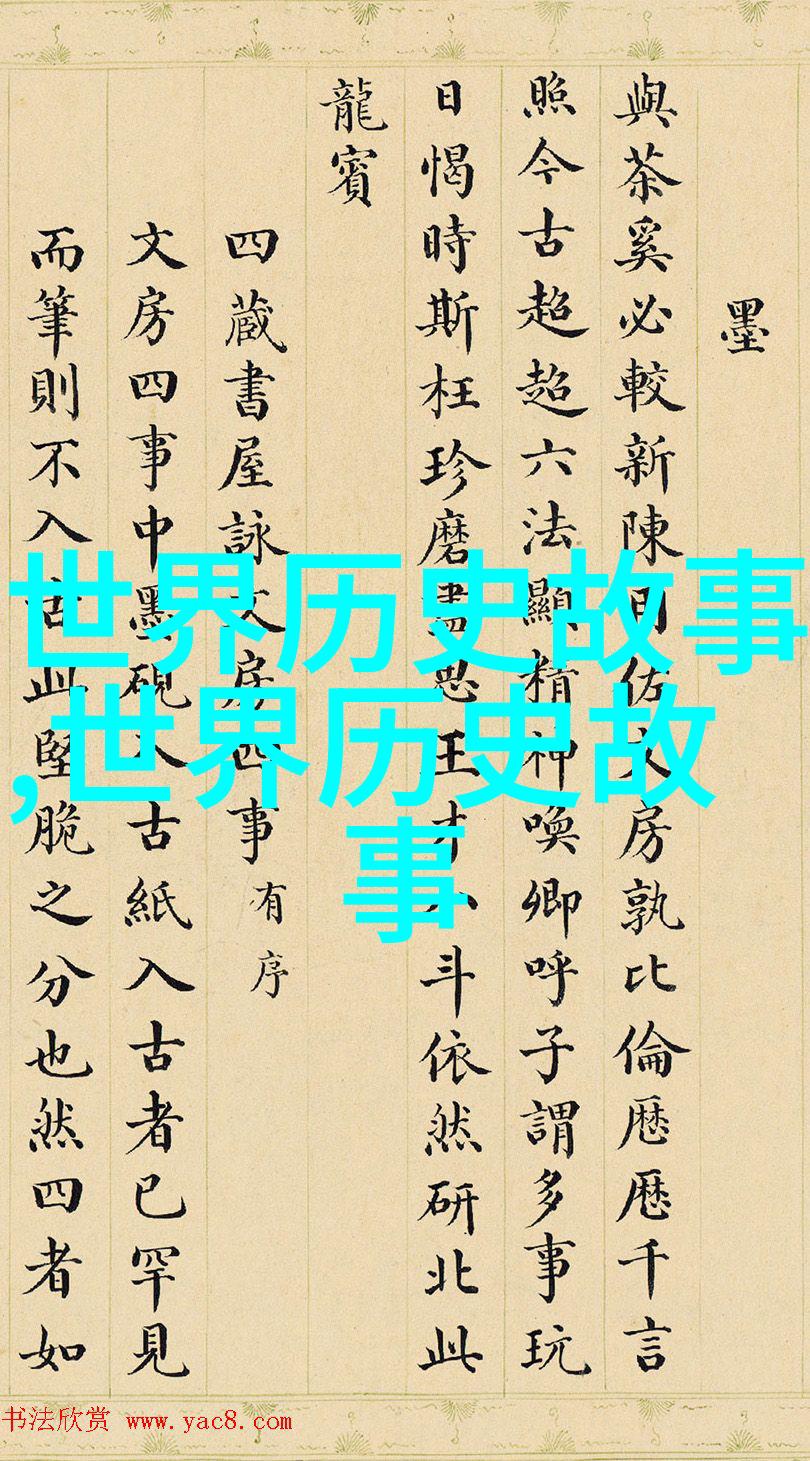 墨
與茶奚必較新陳佐文房孰比倫厯厯千言
照今古超超六法顯精神喚卿呼子謂多事玩
日愒時斯枉珍磨盡思王才八斗依然研北此
龍賓
四蔵書屋詠文房四事有序
文房四事中墨硯入古紙入古者已罕見
而筆則不入古此堅脆之分也然四者如
世界历史故事
,世界历史故
事
书法欣赏 www.yac8.com